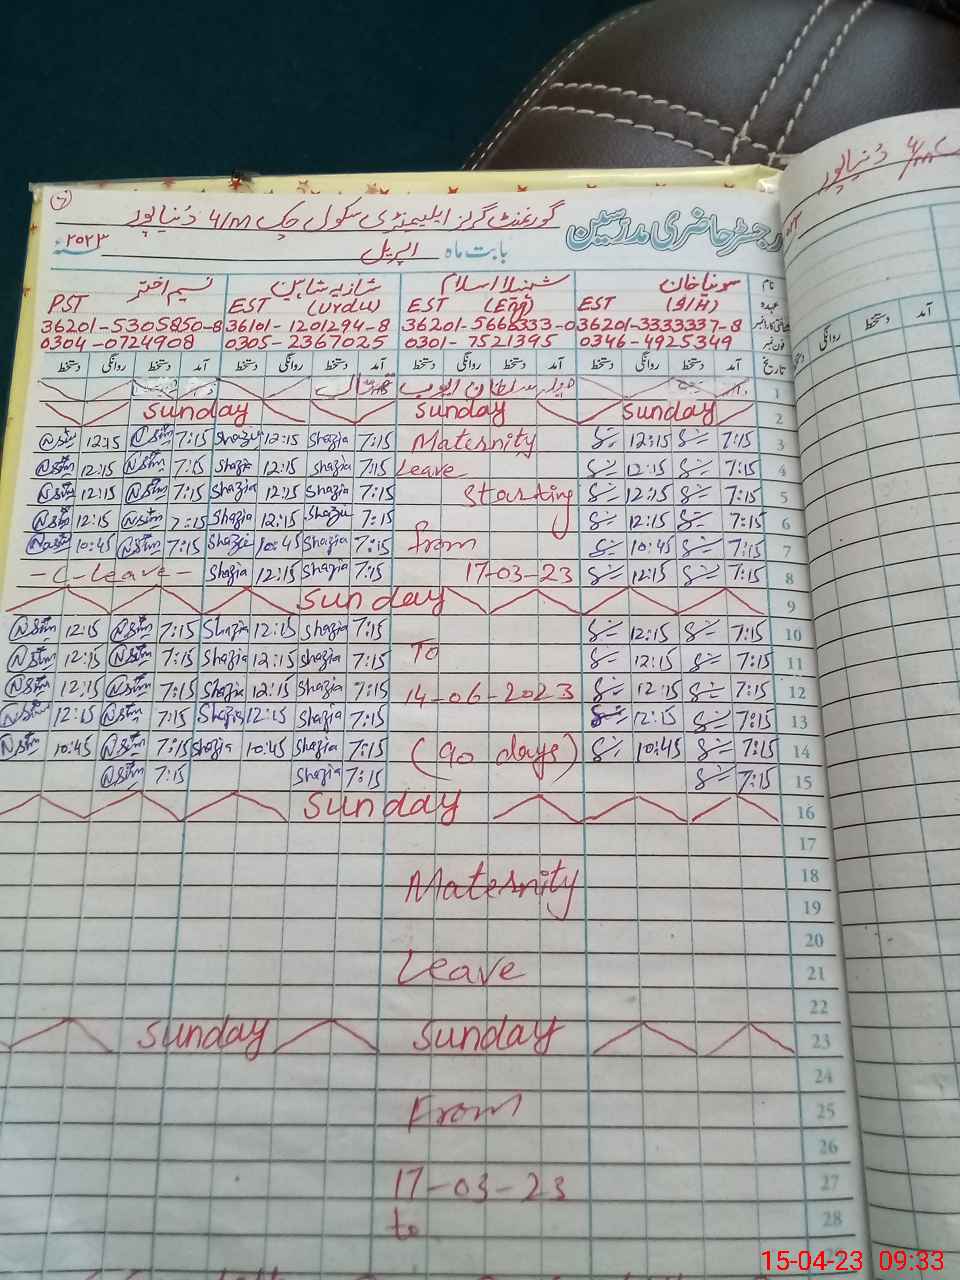 رجسٹر حاضری مدرسین
گورنمنٹ گرلز ایلیمنٹری سکول چک 4/M دُنیاپور
بابت ماہ اپریل ۲۰۲۳
نام شہنیلا اسلام شازیہ شاہین نسیم اختر
عہدہ EST EST (Eng) EST (Urdu) PST
36201-3333337-8 36201-5666333-0 36101-1201294-8 36201-5305850-8
فون نمبر 0346-4925349 0301-7521395 0305-2367025 0304-0724908
تاریخ آمد دستخط روانگی دستخط آمد دستخط روانگی دستخط آمد دستخط روانگی دستخط آمد دستخط روانگی دستخط
1
2 Sunday Sunday Sunday
3 7:15 12:15 Maternity 7:15 Shazia 12:15 Shazia 7:15 12:15
4 7:15 12:15 Leave 7:15 Shazia 12:15 Shazia 7:15 12:15
5 7:15 12:15 Starting 7:15 Shazia 12:15 Shazia 7:15 12:15
6 7:15 12:15 7:15 Shazia 12:15 Shazia 7:15 12:15
7 7:15 10:45 from 7:15 Shazia 10:45 Shazia 7:15 10:45
8 7:15 12:15 17-03-23 7:15 Shazia 12:15 Shazia - C - Leave -
9 Sunday
10 7:15 12:15 7:15 Shazia 12:15 Shazia 7:15 12:15
11 7:15 12:15 To 7:15 Shazia 12:15 Shazia 7:15 12:15
12 7:15 12:15 14-06-2023 7:15 Shazia 12:15 Shazia 7:15 12:15
13 7:15 12:15 7:15 Shazia 12:15 Shazia 7:15 12:15
14 7:15 10:45 (90 days) 7:15 Shazia 10:45 Shazia 7:15 10:45
15 7:15 7:15 Shazia 7:15
16 Sunday
17
18 Maternity
19
20
21 Leave
22
23 Sunday Sunday
24
25 From
26
27 17-03-23
28 to
4/M دُنیاپور
آمد دستخط روانگی
15-04-23 09:33